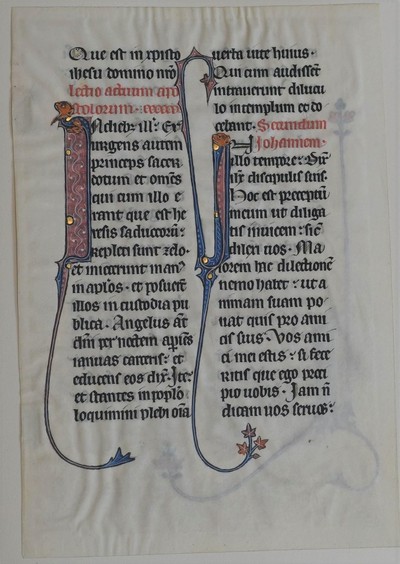 Que est in xpisto
ihesu domino nr̄o
lectio actuum apo
stolorum.
In dieb; ill; Ex
surgens autem
princeps sacer
dotum et om̄s
qui cum illo e
rant que est he
resis saduceorū:
repleti sunt zelo.
et iniecerunt manꝰ
in apl̄os. et posuerūt
illos in custodia pu
blica. Angelus aūt
dn̄i per noctem apiēs
ianuas carceris: et
educens eos dix̄. Ite:
et stantes in tēplo
loquimini plebi oīa
uerba uite huius.
Qui cum audissēt
intrauerunt dilucu
lo in templum et do
cebant. Secundum
Iohannem.
In
illo tempore: Dix̄
ih̄c discipulis suis.
Hoc est preceptū
meum ut diliga
tis inuicem: sic̄
dilexi uos. Ma
iorem hac dilectionē
nemo habet: ut a
nimam suam po
nat quis pro ami
cis suis. Vos ami
ci mei estis: si fece
ritis que ego preci
pio uobis. Iam n̄
dicam uos seruos: